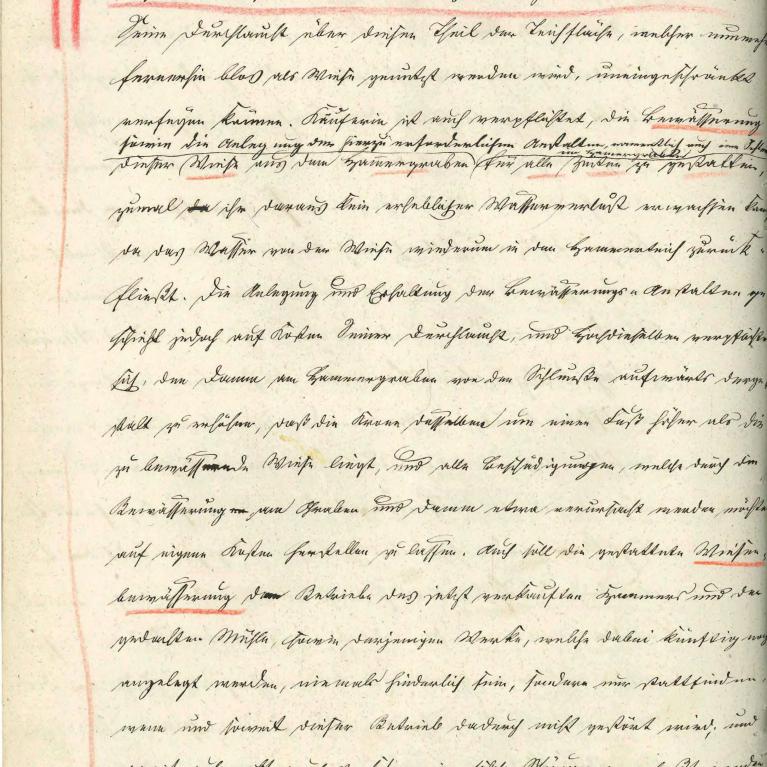 Seine Durchlaucht über diesen Theil der Teichfläche, welcher nunmehr
fernerhin blos als Wiese genutzt werden wird, uneingeschränkt
verfügen können. Käuferin ist auch verpflichtet, die Bewässerung
sowie die Anlegung der hierzu erforderlichen Anstalten, namentlich auch
im Hammergraben
dieser Wiese aus dem Hammergraben für alle Zeiten zu gestatten,
zumal da ihr daraus kein erheblicher Wasserverlust erwachsen kann
da das Wasser von der Wiese wiederum in den Hammerteich zurück-
fließt. Die Anlegung und Erhaltung der Bewässerungs-Anstalten ge
schieht jedoch auf Kosten Seiner Durchlaucht, und Hochdieselben verpflichten
sich, den Damm am Hammergraben von der Schleuße aufwärts derge
stalt zu erhöhen, daß die Krone desselben um einen Fuß höher als die
zu bewässernde Wiese liegt, und alle Beschädigungen, welche durch die
Bewässerung am Graben und Damm etwa verursacht werden möchten
auf eigene Kosten herstellen zu lassen. Auch soll die gestattete Wiesen-
bewässerung dem Betriebe des jetzt verkauften Hammers und der
gedachten Mühle, sowie derjenigen Werke, welche dabei künftig noch
angelegt werden, niemals hinderlich sein, sondern nur stattfinden,
wenn und soweit dieser Betrieb dadurch nicht gestört wird, und